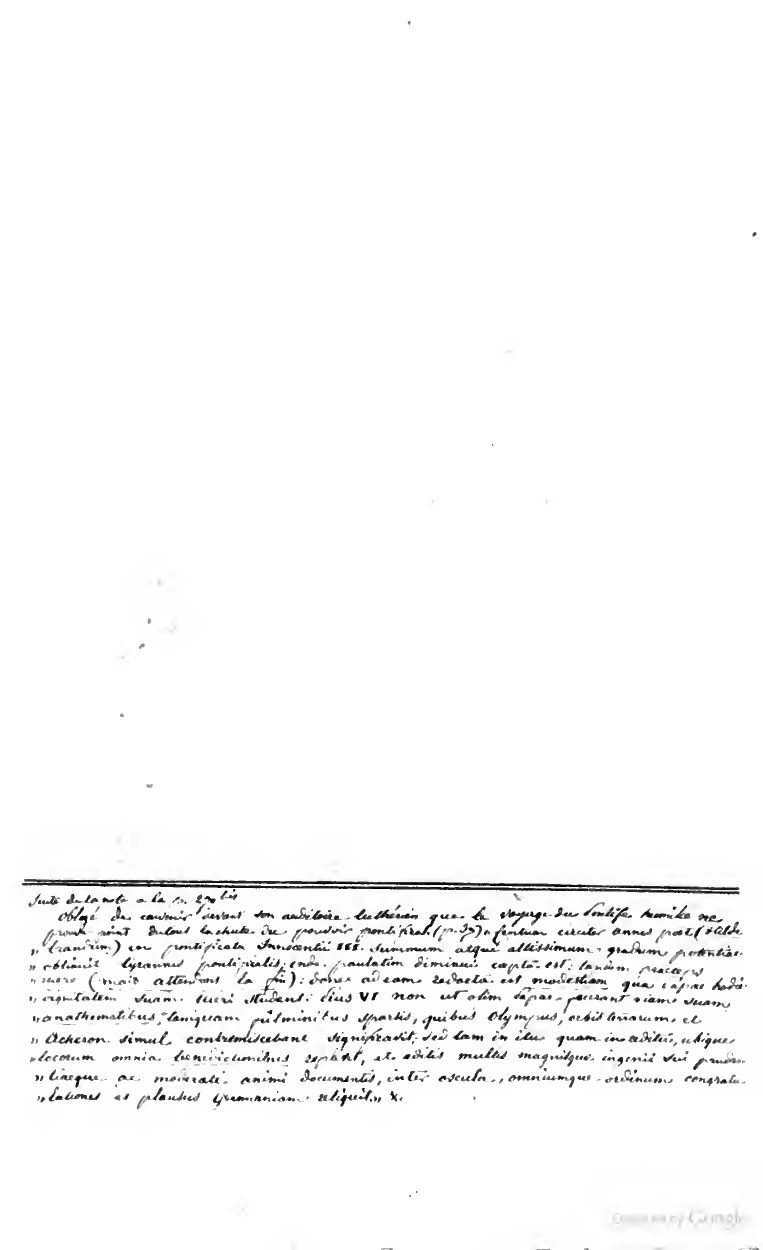 Suite de la note a la p. 270 bis
Obligé de convenir devant son auditoire luthérien que le voyage du Pontife humilié ne
prouve point dutout la chute du pouvoir pontifical. (p. 32) « Centum circiter annis post (Hilde
„ brandum) in pontificatu Innocentii III. Summum atque altissimum gradum potentiae
„ obtinuit tyrannis pontificalis; inde paulatim diminui cæpta est; tandem præceps
„ ruere (mais attendons la fin): donec ad eam redacta est modestiam qua capae hodie
„ dignitatem suam tueri student: Pius VI non ut olim Papae fecerant viam suam
„ anathematibus, tanquam fulminibus sparsis, quibus Olympus, orbis terrarum, et
„ Acheron simul contremiscebant significavit; sed tam in itu quam in reditu, ubique
„ locorum omnia benedictionibus replevit, et editis multis magnisque ingenii sui pruden
„ tiaeque ac moderati animi documentis, inter oscula, omniumque ordinum congratu
„ lationes et plausus Germaniam reliquit. „ X.
Google